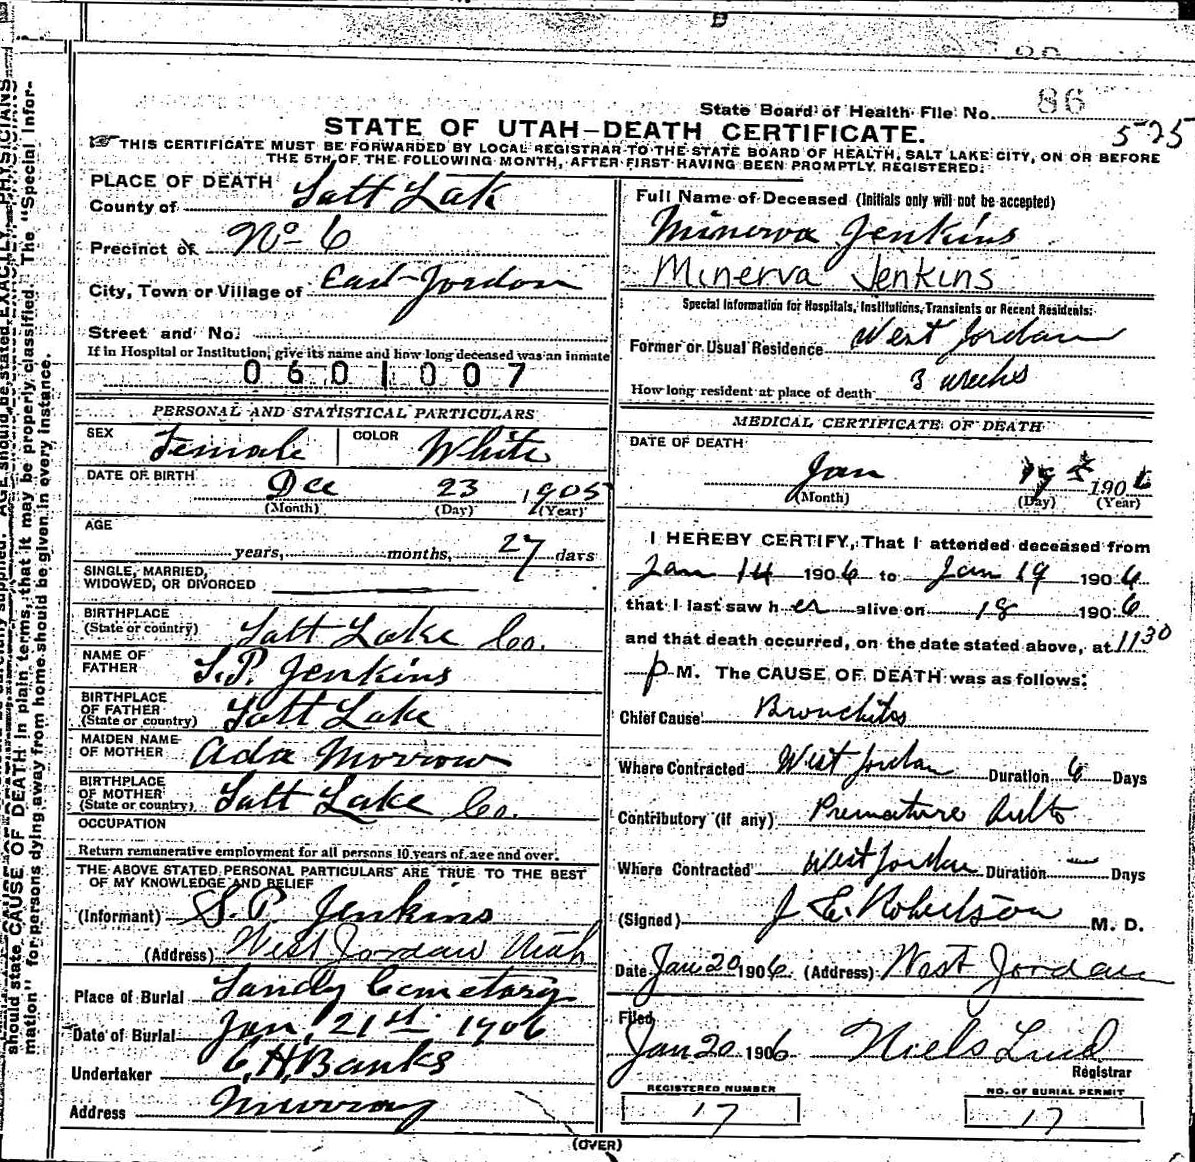 86
State Board of Health File No.
575
STATE OF UTAH—DEATH CERTIFICATE.
THIS CERTIFICATE MUST BE FORWARDED BY LOCAL REGISTRAR TO THE STATE BOARD OF HEALTH, SALT LAKE CITY, ON OR BEFORE
THE 5TH OF THE FOLLOWING MONTH, AFTER FIRST HAVING BEEN PROMPTLY REGISTERED.
PLACE OF DEATH
County of Salt Lake
Precinct of No 6
City, Town or Village of East Jordan
Street and No.
If in Hospital or Institution, give its name and how long deceased was an inmate
0601007
PERSONAL AND STATISTICAL PARTICULARS
SEX Female COLOR White
DATE OF BIRTH Dec 23 1905
(Month) (Day) (Year)
AGE
years, months, 27 days
SINGLE, MARRIED,
WIDOWED, OR DIVORCED
BIRTHPLACE
(State or country) Salt Lake Co.
NAME OF
FATHER S.P. Jenkins
BIRTHPLACE
OF FATHER
(State or country) Salt Lake
MAIDEN NAME
OF MOTHER Ada Morrow
BIRTHPLACE
OF MOTHER
(State or country) Salt Lake Co.
OCCUPATION
Return remunerative employment for all persons 10 years of age and over.
THE ABOVE STATED PERSONAL PARTICULARS ARE TRUE TO THE BEST
OF MY KNOWLEDGE AND BELIEF
(Informant) S.P. Jenkins
(Address) West Jordan Utah
Place of Burial Sandy Cemetary
Date of Burial Jan. 21st 1906
Undertaker C.H. Banks
Address Murray
Full Name of Deceased (Initials only will not be accepted)
Minerva Jenkins
Minerva Jenkins
Special Information for Hospitals, Institutions, Transients or Recent Residents:
Former or Usual Residence West Jordan
How long resident at place of death 3 weeks
MEDICAL CERTIFICATE OF DEATH
DATE OF DEATH
Jan 19 1906
(Month) (Day) (Year)
I HEREBY CERTIFY, That I attended deceased from
Jan 14 1906 to Jan 19 1906
that I last saw her alive on 18 1906
and that death occurred, on the date stated above, at 1130
P M. The CAUSE OF DEATH was as follows:
Chief Cause Bronchitis
Where Contracted West Jordan Duration 6 Days
Contributory (if any) Premature
Where Contracted West Jordan Duration — Days
(Signed) J E. Robertson M. D.
Date Jan 20 1906 (Address) West Jordan
Filed
Jan 20 1906 Niels Lind
Registrar
REGISTERED NUMBER
17
NO. OF BURIAL PERMIT
17
(OVER)
should state CAUSE OF DEATH in plain terms, that it may be properly classified. The "Special Infor-
mation" for persons dying away from home should be given in every instance.